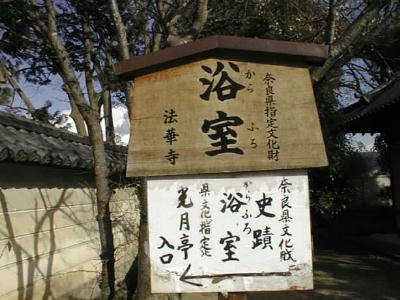 奈良県指定文化財
浴室
からふろ
法華寺
奈良県文化財
史蹟
浴室
からふろ
県文化指定
光月亭
入口